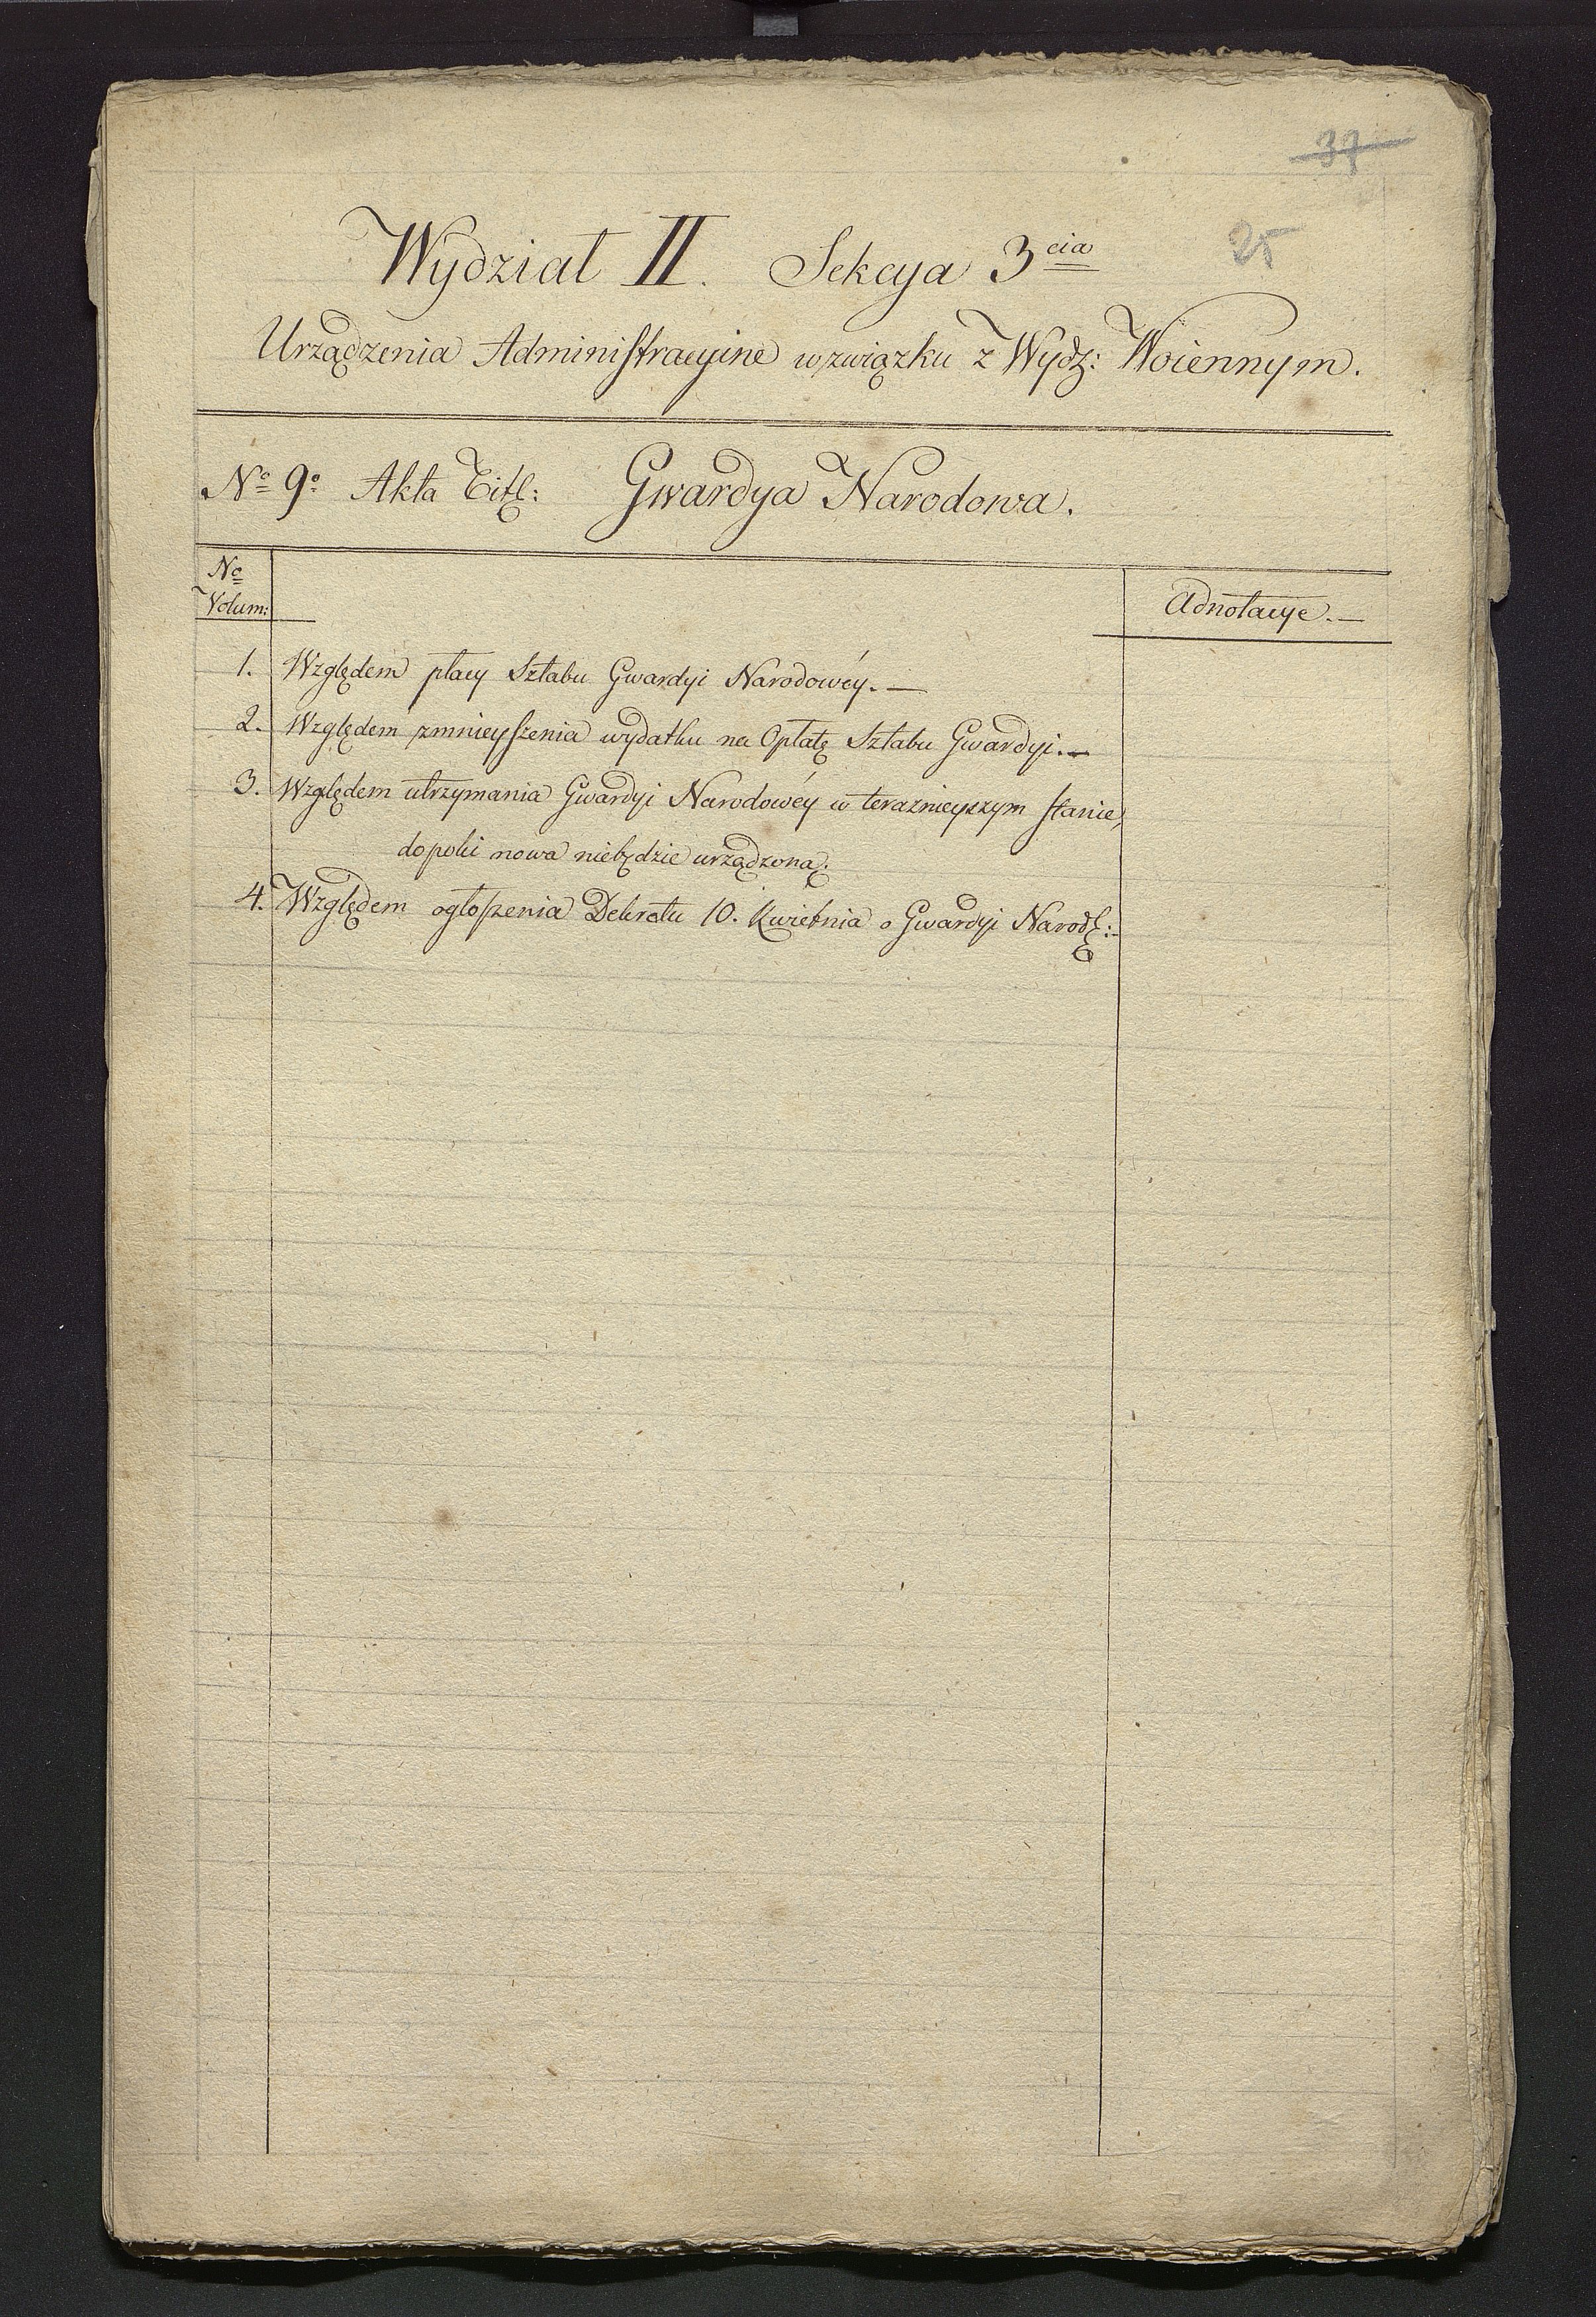 37
25
Wydział II. Sekcya 3cia
Urządzenia Administracyine w związku z Wydz: Woiennym.
No 9o Akta Titl: Gwardya Narodowa.
No
Volum:
Adnotacye.—
1. Względem płacy Sztabu Gwardyi Narodowéy.—
2. Względem zmnieyszenia wydatku na Opłatę Sztabu Gwardyi.—
3. Względem utrzymania Gwardyi Narodowéy w teraznieyszym stanie,
dopoki nowa niebędzie urządzoną.
4. Względem ogłoszenia Dekretu 10. Kwietnia o Gwardyi Narod: